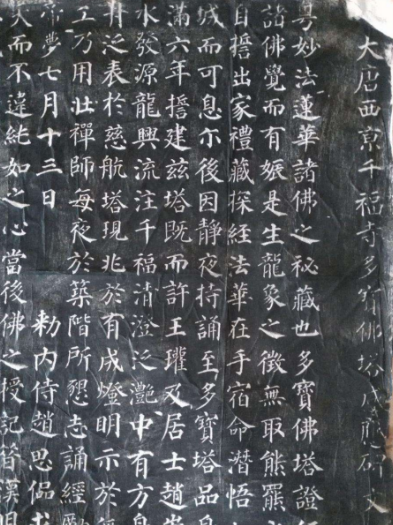 大唐西京千福寺多寶佛塔感應碑文
粵妙法蓮華諸佛之秘藏也多寶佛塔證
諸佛覺而有娠是生龍象之徵無取熊羆
自誓出家禮藏探經法華在手宿命潛悟
城而可息尔後因靜夜持誦至多寶塔品身
滿六年誓建茲塔既而許王瓘及居士趙崇
水發源龍興流注千福清澄泛灩中有方舟
井泛表於慈航塔現兆於有成燈明示於
工乃用壯禪師每夜於築階所懇志誦經勵
帝夢七月十三日 勑内侍趙思偘求
天而不違純如之心當後佛之授記昔漢明